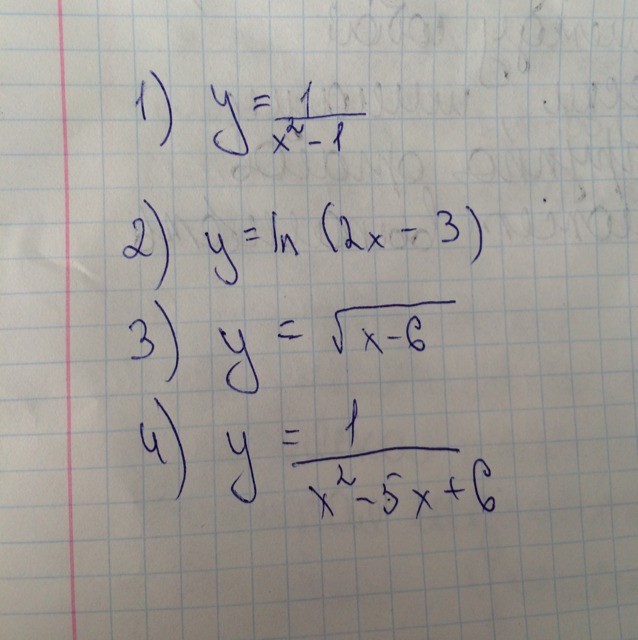 1) y = 1/(x² - 1)
2) y = ln (2x - 3)
3) y = √(x - 6)
4) y = 1/(x² - 5x + 6)